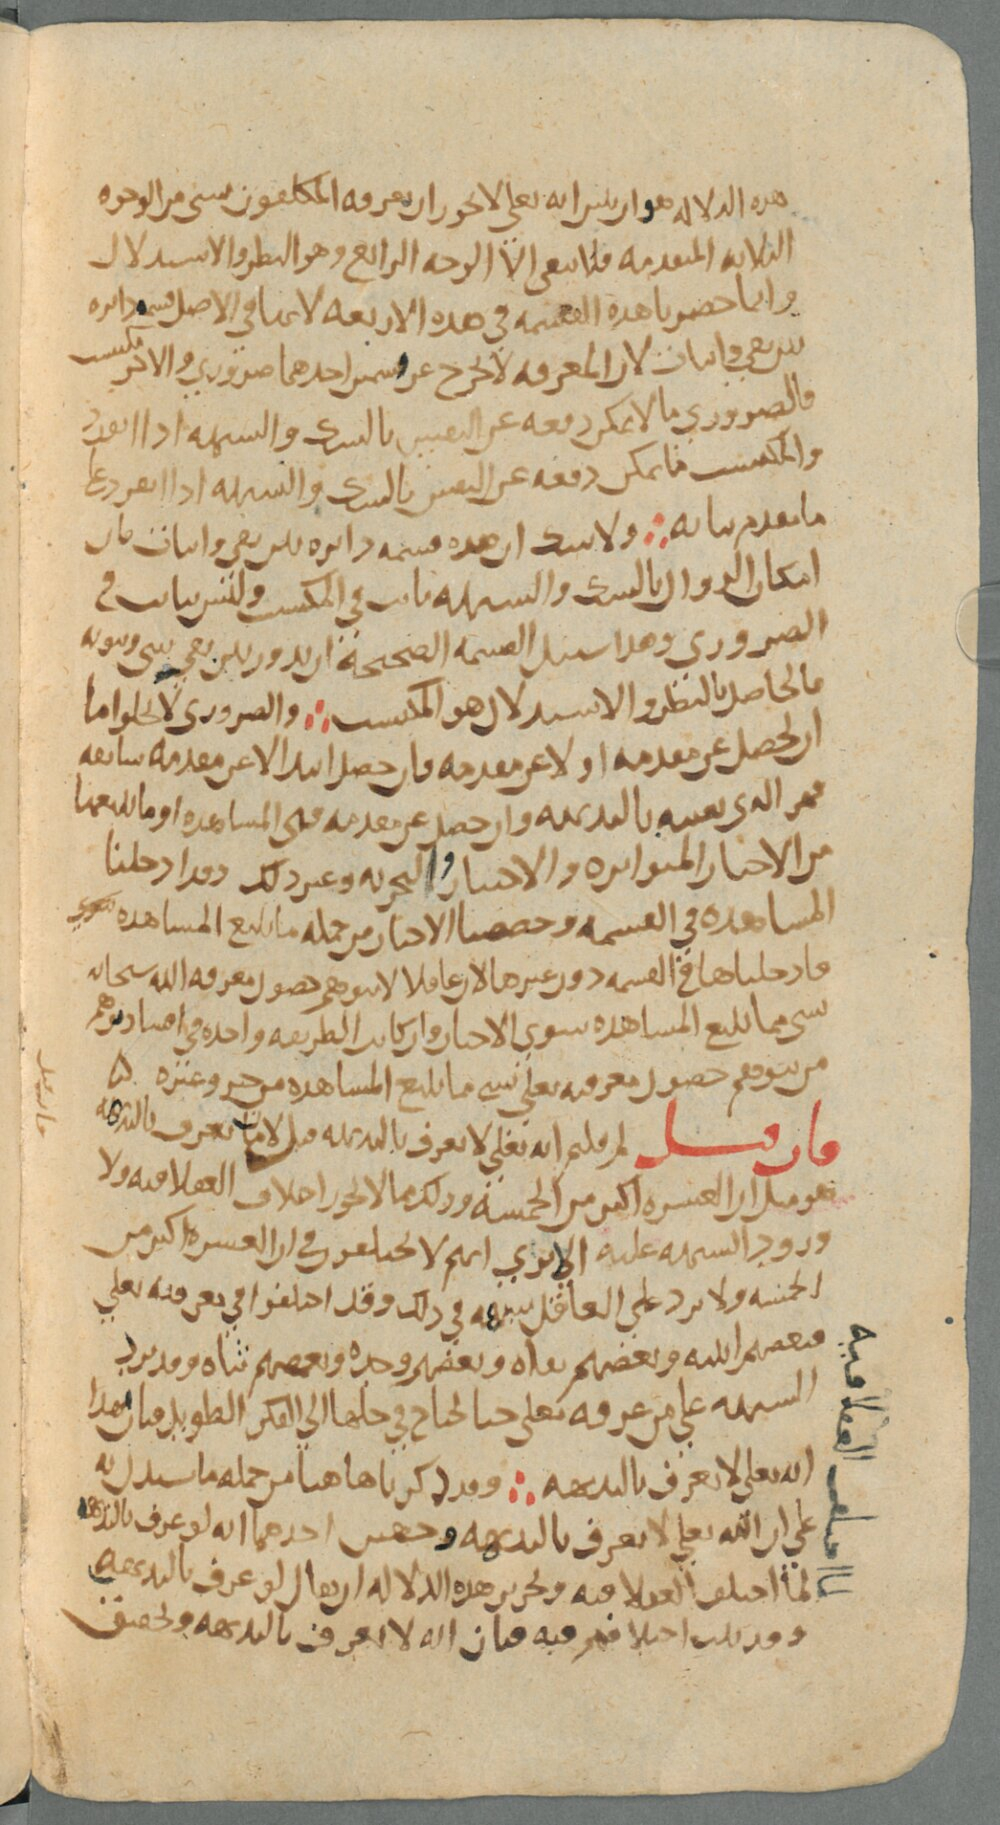 هذه الدلالة هو ان يتبين انه تعلى لا يجوز ان يعرفه المكلفون بشي من الوجوه
الثلاثة المتقدمة فلا يبقى الا الوجه الرابع وهو النظر والاستدلال
وانما حصرنا هذه القسمة في هذه الاربعة لانها في الاصل قسمة دايرة
بين نفي واثبات لان المعرفة لا تخرج عن قسمين احدهما ضروري والاخر مكتسب
فالضروري ما لا يمكن دفعه عن النفس بالشك والشبهة اذا انفرد
والمكتسب ما يمكن دفعه عن النفس بالشك والشبهة اذا انفرد على
ما تقدم بيانه ∴ ولا شك ان هذه قسمة دايرة بين نفي واثبات فان
امكان الزوال بالشك والشبهة ثابت في المكتسب وليس بثابت في
الضروري وهذا سبيل القسمة الصحيحة ان تدور بين نفي شي وثبوته
فالحاصل بالنظر والاستدلال هو المكتسب ∴ والضروري لا يخلوا اما
ان يحصل عن مقدمة او لا عن مقدمة فان حصل ابتدا لا عن مقدمة سابقة
فهو الذي نعنيه بالبديهة وان حصل عن مقدمة فهي المشاهدة او ما يتبعها
من الاخبار المتواترة والاختبار والتجربة وغير ذلك وقد ادخلنا
المشاهدة في القسمة وخصصنا الاخبار من جملة ما يتبع المشاهدة
فادخلناها في القسمة دون غيرها لان عاقلا لا يتوهم حصول معرفة الله سبحانه
بشي مما يتبع المشاهدة سوى الاخبار وان كانت الطريقة واحدة في افساد توهم
من يتوهم حصول معرفته تعلى بشي مما يتبع المشاهدة من خبر وغيره
فان قيل لم قلتم انه تعلى لا يعرف بالبديهة قيل لان ما يعرف بالبديهة
هو مثل ان العشرة اكثر من الخمسة وذلك مما لا يجوز اختلاف العقلا فيه ولا
ورود الشبهة عليه الا ترى انهم لا يختلفون في ان العشرة اكثر من
الخمسة ولا يرد على العاقل شبهة في ذلك وقد اختلفوا في معرفته تعلى
فبعضهم اثبته وبعضهم نفاه وبعضهم وحده وبعضهم ثناه وقد ترد
الشبهة على من عرفه تعلى حتى يحتاج في حلها الى الفكر الطويل فبان بهذا
انه تعلى لا يعرف بالبديهة ∴ وقد ذكرنا هاهنا من جملة ما يستدل به
على ان الله تعلى لا يعرف بالبديهة وجهين احدهما انه لو عرف بالبديهة
لما اختلف العقلا فيه وتحرير هذه الدلالة ان يقال لو عرف بالبديهة
لما اختلف العقلا فيه
وقد ثبت اختلافهم فيه فبان انه لا يعرف بالبديهة وتحقيق
فان قيل